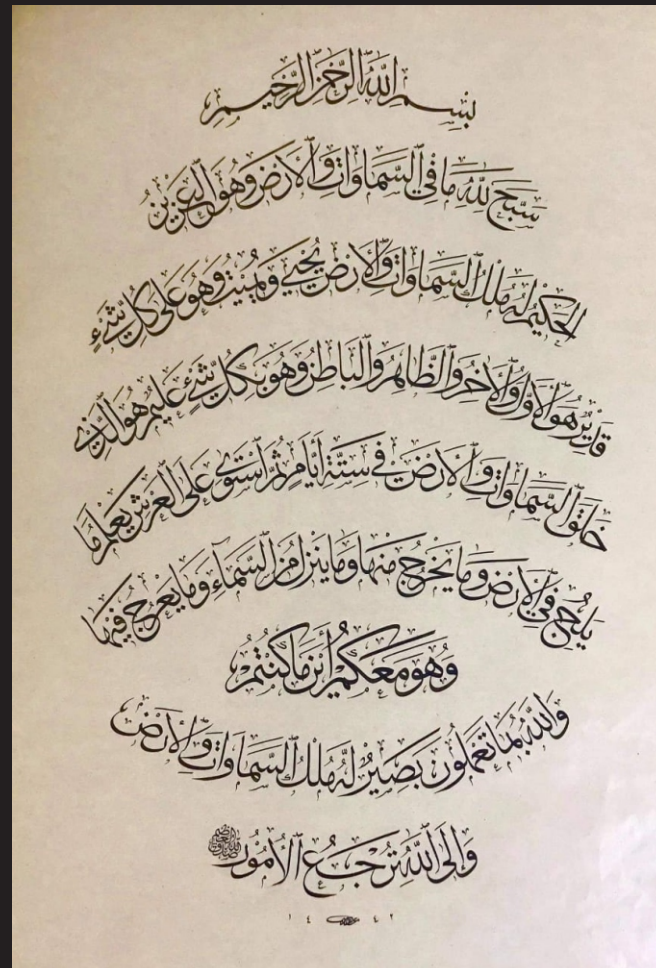 بِسْمِ اللهِ الرَّحْمٰنِ الرَّحِيمِ
سَبَّحَ لِلّٰهِ مَا فِي السَّمَاوَاتِ وَالْأَرْضِ وَهُوَ الْعَزِيزُ
الْحَكِيمُ لَهُ مُلْكُ السَّمَاوَاتِ وَالْأَرْضِ يُحْيِي وَيُمِيتُ وَهُوَ عَلَى كُلِّ شَيْءٍ
قَدِيرٌ هُوَ الْأَوَّلُ وَالْآخِرُ وَالظَّاهِرُ وَالْبَاطِنُ وَهُوَ بِكُلِّ شَيْءٍ عَلِيمٌ هُوَ الَّذِي
خَلَقَ السَّمَاوَاتِ وَالْأَرْضَ فِي سِتَّةِ أَيَّامٍ ثُمَّ اسْتَوَى عَلَى الْعَرْشِ يَعْلَمُ مَا
يَلِجُ فِي الْأَرْضِ وَمَا يَخْرُجُ مِنْهَا وَمَا يَنْزِلُ مِنَ السَّمَاءِ وَمَا يَعْرُجُ فِيهَا
وَهُوَ مَعَكُمْ أَيْنَ مَا كُنْتُمْ
وَاللهُ بِمَا تَعْمَلُونَ بَصِيرٌ لَهُ مُلْكُ السَّمَاوَاتِ وَالْأَرْضِ
وَإِلَى اللهِ تُرْجَعُ الْأُمُورُ
١٤ ٤٢